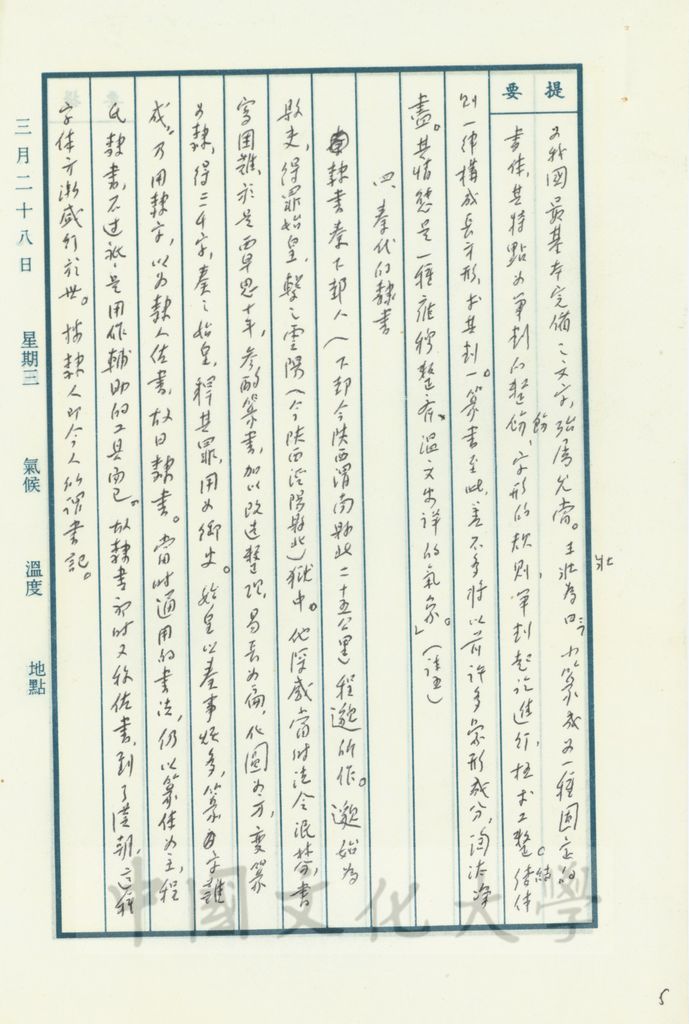 提要
為我國最基本完備之文字，殆屬允當。王壯為曰：「小篆成為一種固定的
書体，其特點為筆劃的整飭、字形的規則，筆劃起訖進行，極求工整。結体
則一律構成長方形，尤其到一篆書至此，差不多將以前許多象形成分，淘汰淨
盡。其情態是一種雍穆整齊、溫文安詳的氣象。」（註五）
四 秦代的隸書
隸書秦下邽人（下邽今陝西渭南縣北二十五公里）程邈所作。邈始為
縣吏，得罪始皇，繫之雲陽（今陝西涇陽縣北）獄中。他深感當時法令泯棼，書
寫困難，於是覃思十年，參酌篆書，加以改造整理，易長為扁，化圓為方，變篆
為隸，得三千字，奏之始皇，釋其罪，用為御史。始皇以奏事煩多，篆字難
成，乃用隸字，以為隸人佐書，故曰隸書。當時通用的書法，仍以篆体為主，程
氏隸書，不過祇是用作輔助的工具而已。故隸書初時又称佐書，到了漢朝，這種
字体方漸盛行於世。按隸人即今人所謂書記。
三月二十八日 星期三 氣候 溫度 地點
壯
中國文化大學
5